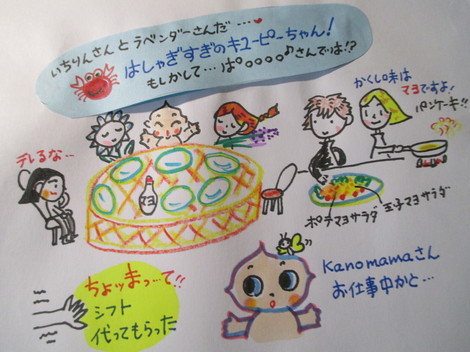 いちりんさんとラベンダーさんだ・・・・❤
はしゃぎすぎのキューピーちゃん!
もしかして・・・ぱ°○○○○♪さんでは!?
かくし味は
マヨですよ!
パンケーキ!!
テレるな・・・
ポテマヨサラダ
玉子マヨサラダ
ちょッまっ・・・て!!
シフト
代ってもらった
Kanomamaさん
お仕事中かと・・・